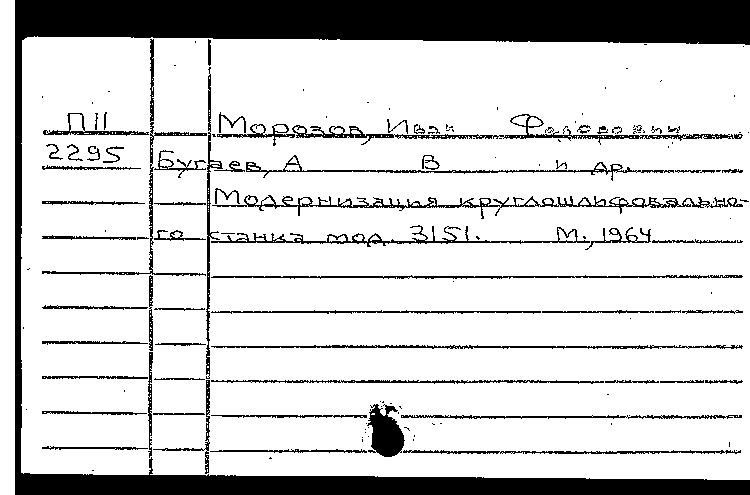 П11 Морозов, Иван Федорович
2295 Бугаев, А В и др.
Модернизация круглошлифовально-
го станка мод. 3151. М., 1964